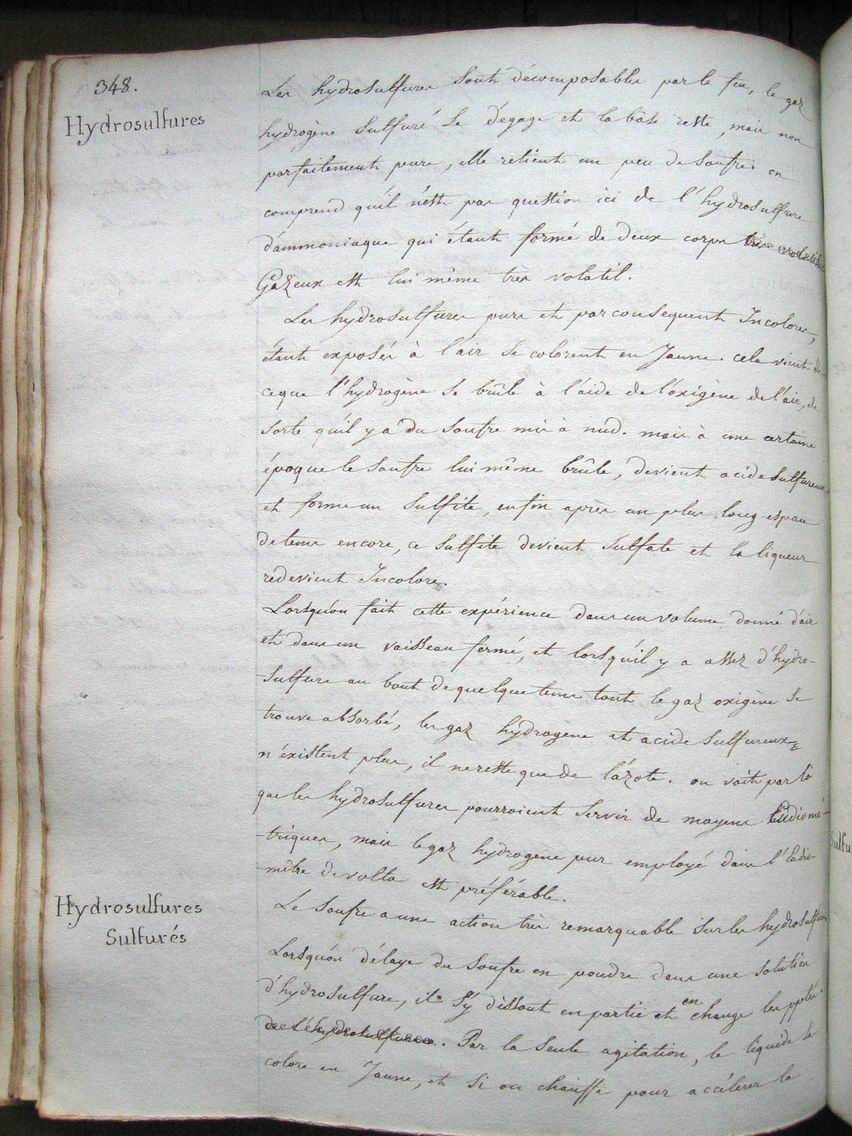 348.
Hydrosulfures
Les hydrosulfures sont décomposables par le feu, le gaz
hydrogène sulfuré se dégage et la base reste, mais non
parfaitement pure, elle retient un peu de soufre. on
comprend qu'il n'est pas question ici de l'hydrosulfure
d'ammoniaque qui étant formé de deux corps
Gazeux est lui même tres volatil.
Les hydrosulfures purs et par consequent Incolores,
étant exposés à l'air se colorent en Jaune. cela vient de
ceque l'hydrogène se brûle à l'aide de l'oxigène de l'air, de
sorte qu'il y a du soufre mis à nud. mais à une certaine
époque le soufre lui même brûle, devient acide sulfureux
et forme un sulfite, enfin après un plus long espace
de tems encore, ce sulfite devient sulfate et la liqueur
redevient Incolore.
Lorsqu'on fait cette expérience dans un volume donné d'air
et dans un vaisseau fermé, et lorsqu'il y a assez d'hydro-
-sulfure au bout de quelque tems tout le gaz oxigène se
trouve absorbé, les gaz hydrogène et acide sulfureux
n'existent plus, il ne reste que de l'azote. on voit par là
que les hydrosulfures pourroient servir de moyens Eudiomé-
-triques, mais le gaz hydrogene pur employé dans l'Eudio-
-mètre de volta est préférable.
Hydrosulfures
Sulfurés
Le soufre a une action très remarquable sur les hydrosulfures
Lorsqu'on délaye du soufre en poudre dans une solution
d'hydrosulfure, il s'y dissout en partie et en change les pptés.
de l'hydrosulfure. Par la seule agitation, le liquide se
colore en Jaune, et si on chauffe pour accélérer la
Sulfu